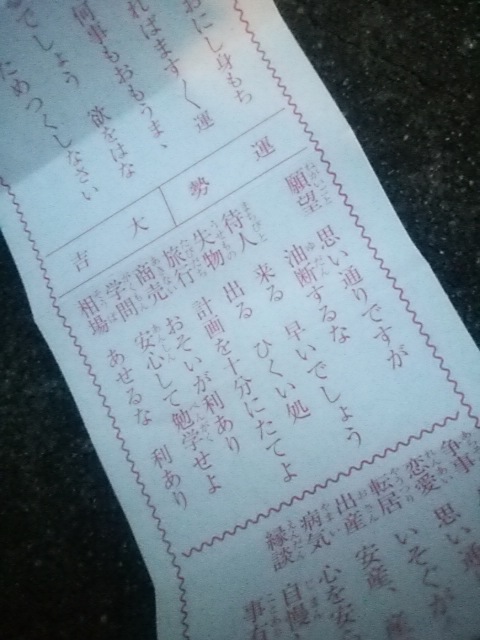 おにし身もち
ればますく運
何事もおもうま、
でしょう 欲をはな
ためつくしなさい
運勢
大吉
願望 思い通りですが
油断するな
待人 来る 早いでしょう
失物 出る ひくい処
旅行 計画を十分にたてよ
商売 おそいが利あり
学問 安心して勉学せよ
相場 あせるな 利あり
争事 思い通
恋愛 いそぐが
転居
出産 安産、産
病気 心を安
縁談 自慢
事有